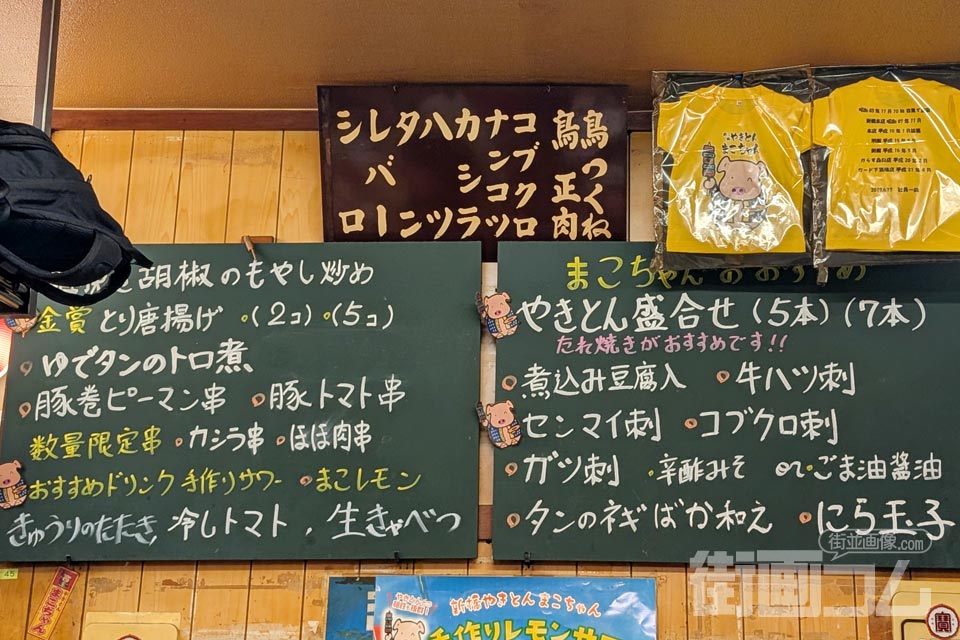 鳥つくね
鳥正肉
コブクロ
ナンコツ
カシラ
ハツ
タン
レバー
シロ
胡椒のもやし炒め
金賞 とり唐揚げ ・(2コ)・(5コ)
・ゆでタンのトロ煮
・豚巻ピーマン串 ・豚トマト串
数量限定串 ・カシラ串 ・ほほ肉串
おすすめドリンク 手作りサワー ・まこレモン
きゅうりのたたき, 冷しトマト, 生きゃべつ
まこちゃんのおすすめ
やきとん盛合せ(5本)(7本)
たれ焼きがおすすめです!!
・煮込み豆腐入 ・牛ハツ刺
・センマイ刺 ・コブクロ刺
・ガツ刺 ・辛酢みそ or ・ごま油醤油
・タンのネギばか和え ・にら玉子
やきとん
まこちゃん
新橋やきとんまこちゃん
手作りレモンサワ
45
街並画像.com
街画コム